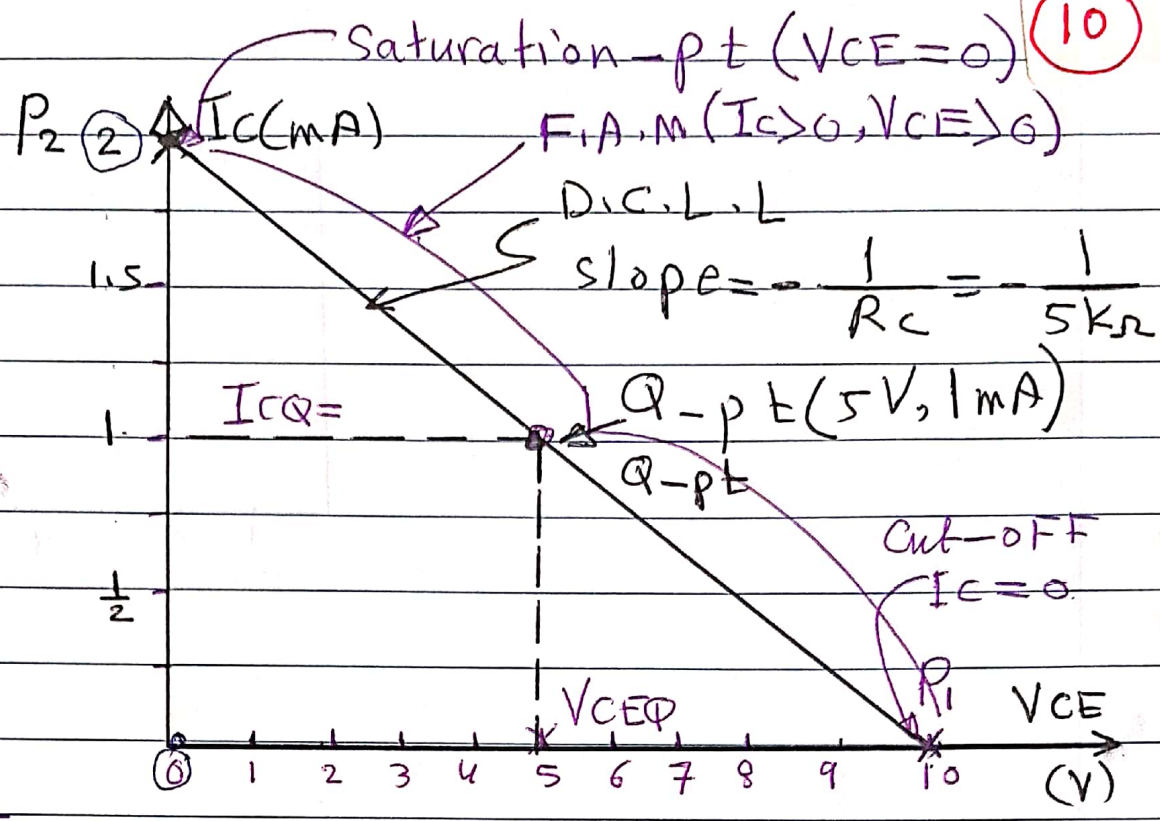 10
Saturation-pt (VCE=0)
P2 2 IC(mA)
F.A.M (Ic>0, VCE>0)
D.C.L.L
1.5
slope = - 1/RC = - 1/5KΩ
ICQ=
Q-pt (5V, 1mA)
1
Q-pt
Cut-oFF
IC=0
1/2
P1
VCEQ
VCE
0 1 2 3 4 5 6 7 8 9 10
(V)